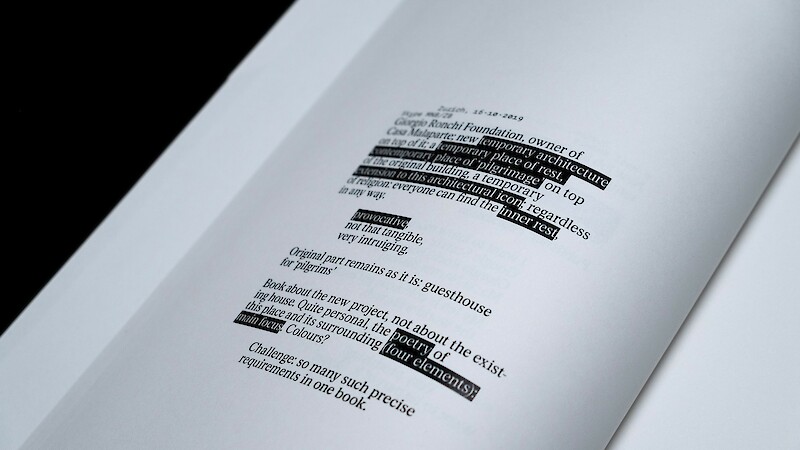 Zurich, 16-10-2019
Giorgio Ronchi Foundation, owner of
Casa Malaparte: new temporary architecture
on top of it: a temporary place of rest,
contemporary place of 'pilgrimage' on top
of the original building, a temporary
extension to this architectural icon; regardless
of religion: everyone can find the inner rest,
in any way.
provocative,
not that tangible,
very intruiging,
Original part remains as it is: guesthouse
for 'pilgrims'
Book about the new project, not about the exist-
ing house. Quite personal, the poetry of
this place and its surrounding (four elements);
main focus. Colours?
Challenge: so many such precise
requirements in one book.